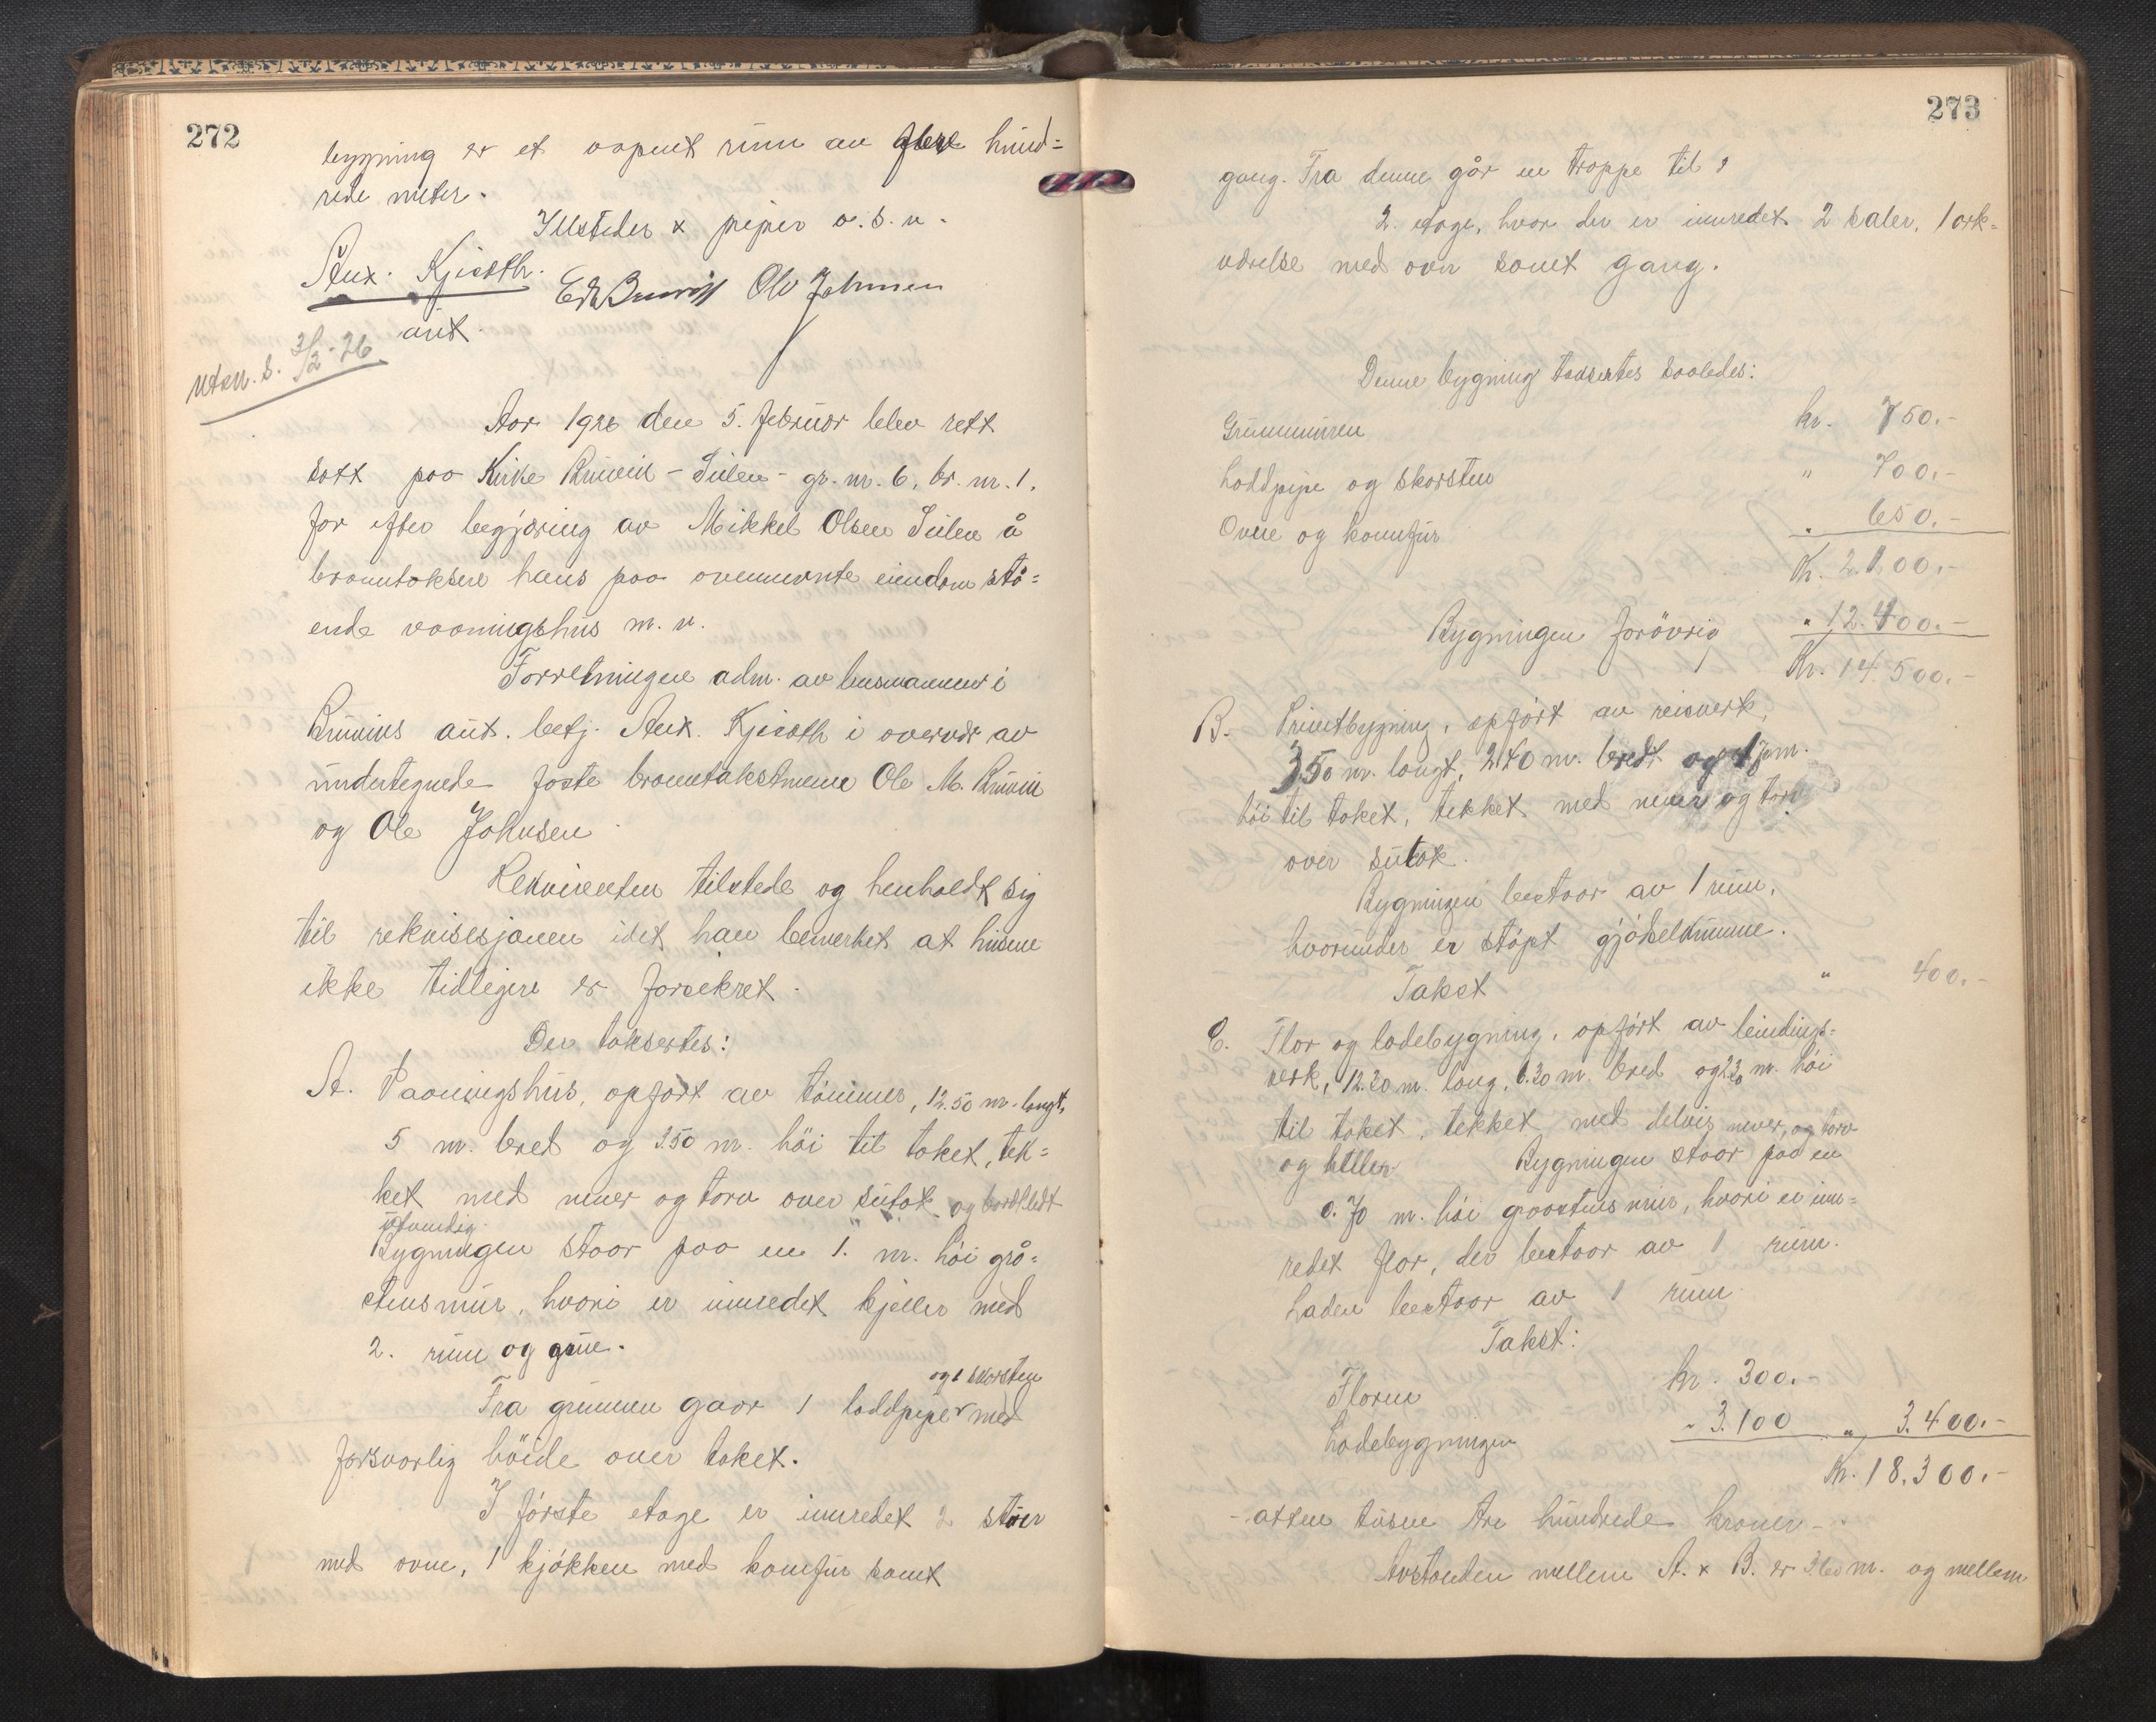 272
bygning er et aapent rum av flere hund=
rede meter.
Ildsteder & piper o.s.v.
Anx. Kjisoth.
Ole Johnsen
aut.
utsk. s. 3/2-26
Aar 1926 den 5. februar blev rett
satt paa Kirke Bruvik - Tulen - gr. nr. 6, br. nr. 1.
for efter begjæring av Mikkel Olsen Tulen å
branntaksere hans paa ovennevnte eiendom stå=
ende vaaningshus m. v.
Forretningen adm. av lensmannen i
Bruviks aut. betj. Anx. Kjisoth i overvær av
undertegnede faste branntakstmenn Ole M. Bruvik
og Ole Johnsen.
Rekvirenten tilstede og henholdt sig
til rekvisisjonen idet han bemerket at husene
ikke tidligere er forsikret.
Der taksertes:
A. Vaaningshus, opført av tømmer, 12.50 m. langt,
5 m. bred og 3.50 m. høi til taket, tek=
ket med never og torv over sutak og bordkledt
utvendig.
Bygningen staar paa en 1. m. høi grå=
stensmur, hvori er innredet kjeller med
2. rum og grue.
og 1 skorsten
Fra grunnen gaar 1 loddpipe med
forsvarlig høide over taket.
I første etage er innredet 2 stuer
med ovne, 1 kjøkken med komfur samt
273
gang. Fra denne går en trappe til
2. etage, hvor der er innredet 2 saler, 1 ark=
værelse med ovn samt gang.
Denne bygning taksertes saaledes:
Grunnmuren kr. 750.-
Loddpipe og skorsten " 700.-
Ovne og komfur " 650.-
Kr. 2.100.-
Bygningen forøvrig " 12.400.-
Kr. 14.500.-
B. Privetbygning, opført av reisverk,
3.50 m. langt, 2.40 m. bredt og m.
høi til taket, tekket med never og torv
over sutak.
Bygningen bestaar av 1 rum,
hvorunder er støpt gjødselkumme.
Takst " 400.-
C. Flor og ladebygning, opført av bindings=
verk, 12.20 m. lang, 6.30 m. bred og 2.30 m. høi
til taket, tekket med delvis never, og torv
og heller. Bygningen staar paa en
0.70 m. høi graastens mur, hvori er inn=
redet flor, der bestaar av 1 rum.
Laden bestaar av 1 rum.
Takst:
Floren kr. 300.-
Ladebygningen " 3.100 " 3.400.-
Kr. 18.300.-
- atten tusen tre hundrede kroner -
Avstanden mellem A. & B. er 3.60 m. og mellem